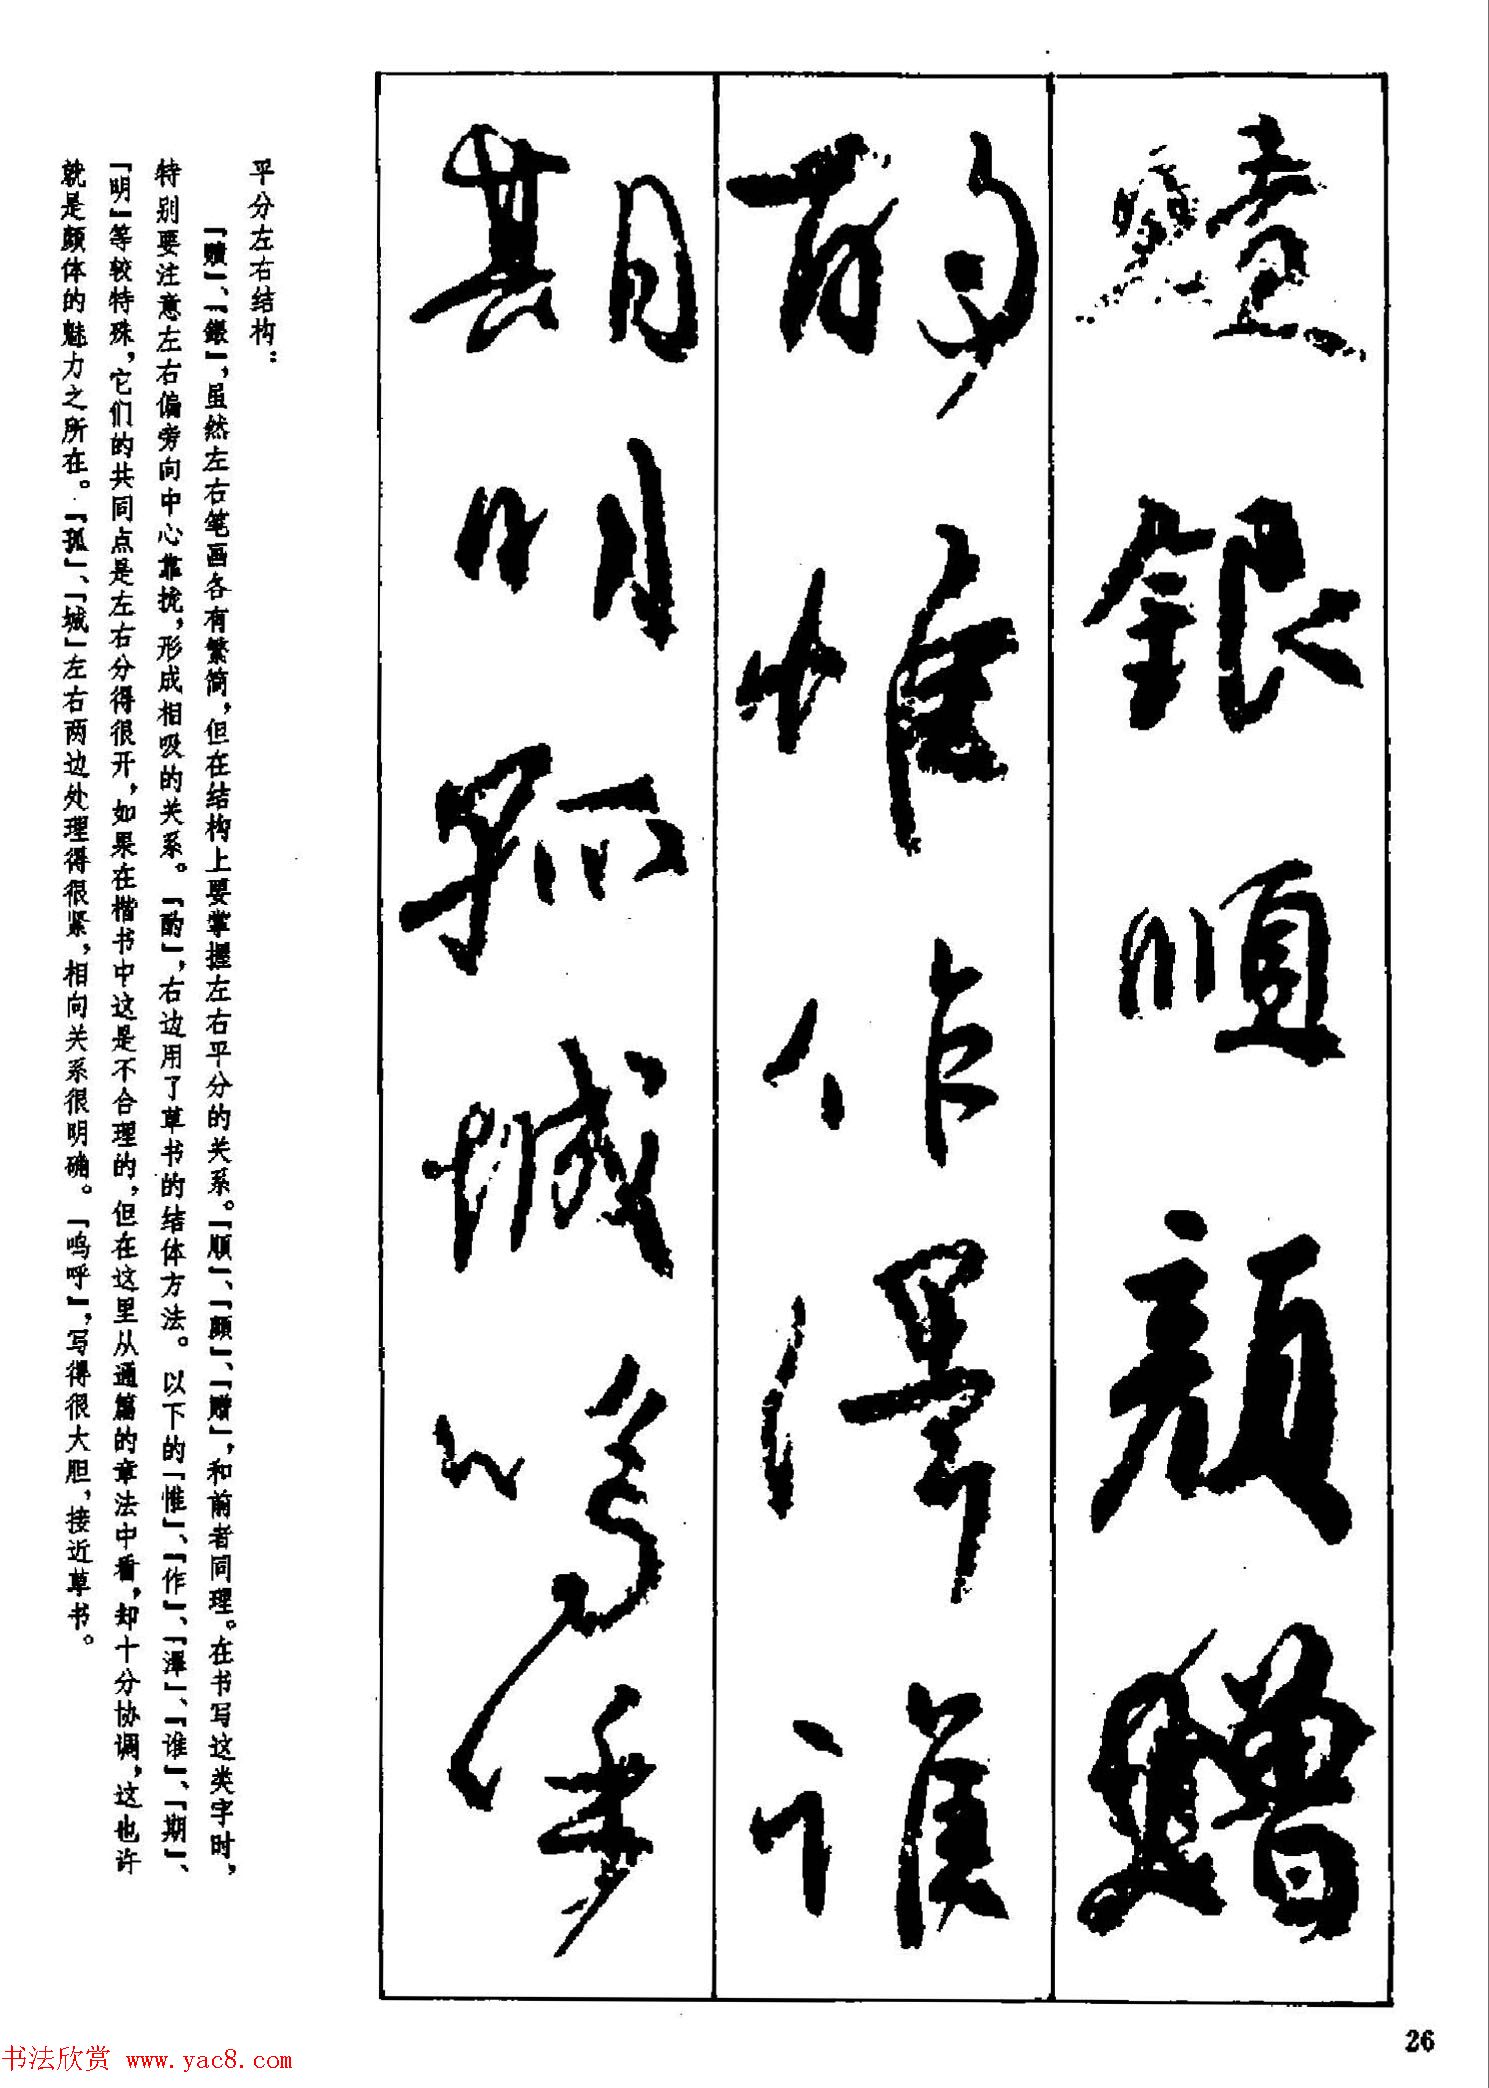 贖銀順顏贈
酌惟作澤誰
期明孤城嗚呼
平分左右结构：
「赎」、「银」，虽然左右笔画各有繁简，但在结构上要掌握左右平分的关系。「顺」、「颜」、「赠」，和前者同理。在书写这类字时，
特别要注意左右偏旁向中心靠拢，形成相吸的关系。「酌」，右边用了草书的结体方法。以下的「惟」、「作」、「泽」、「谁」、「期」、
「明」等较特殊，它们的共同点是左右分得很开，如果在楷书中这是不合理的，但在这里从通篇的章法中看，却十分协调，这也许
就是颜体的魅力之所在。「孤」、「城」左右两边处理得很紧，相向关系很明确。「呜呼」，写得很大胆，接近草书。
26
书法欣赏 www.yac8.com